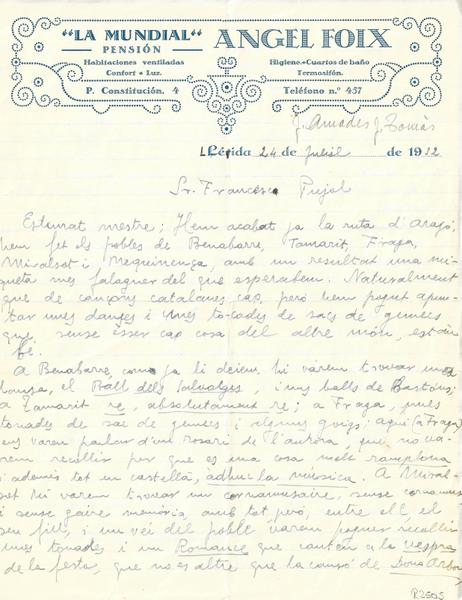 "LA MUNDIAL"
PENSIÓN
Habitaciones ventiladas
Confort • Luz.
P. Constitución, 4
ANGEL FOIX
Higiene • Cuartos de baño
Termosifón.
Teléfono n.º 457
J. Amades J. Tomàs
Lérida 24 de Juliol de 1932
Sr. Francesc Pujol
Estimat mestre; Hem acabat ja la ruta d'Aragó,
hem fet els pobles de Benabarre, Tamarit, Fraga,
Miralsot i Mequinença, amb un resultat una mi-
queta mes falaguer del que esperabem. Naturalment
que de cançons catalanes cap, però hem pogut apun-
tar unes danses i unes tocades de sacs de gemecs
que sense ésser cap cosa del altre món, estan
bé.
A Benabarre, com ja li deiem, hi varem trovar una
dansa, el Ball dels Salvatges, i uns balls de Bastons;
a Tamarit re, absolutament re; a Fraga, unes
tonades de sac de gemecs i algunes goigs; aqui (a Fraga)
ens varen parlar d'un rosari de l'aurora, que no va-
rem recullir per que es una cosa molt ramplona
i ademés tot en castellà, àdhuc la música. A Miral-
sot hi varem trovar un cornamusaire, sense cornamusa
i sense gaire memòria, amb tot però, entre ell, el
seu fill, i un vei del poble varem poguer recullir
unes tonades i un Romance que canten a la vespra
de la festa, que no es altre que la cançó de Dona Arbo
R.2505